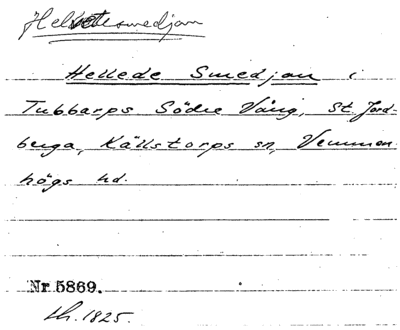 Helvetesmedjan
Hellede Smedjan i
Tubbarps Södre Vång, St. Jord-
berga, Källstorps sn, Vemmen-
högs hd.
Nr 5869.
Lh. 1825.